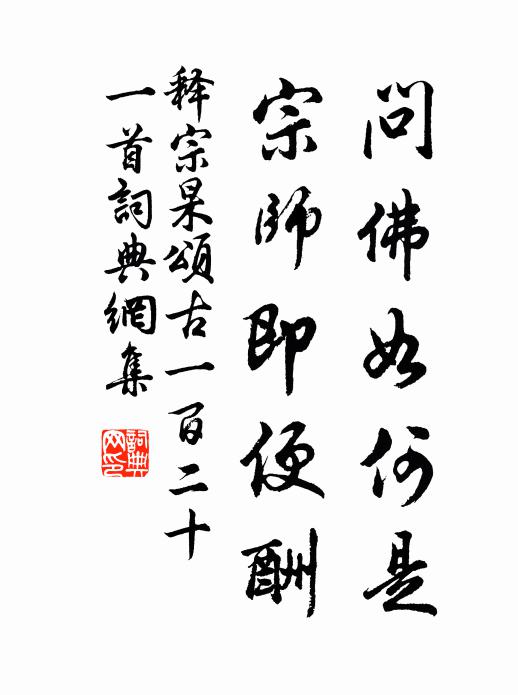 問佛如何是
宗師即便酬
释宗杲頌古一百二十
一首詞典網集
詞典网印